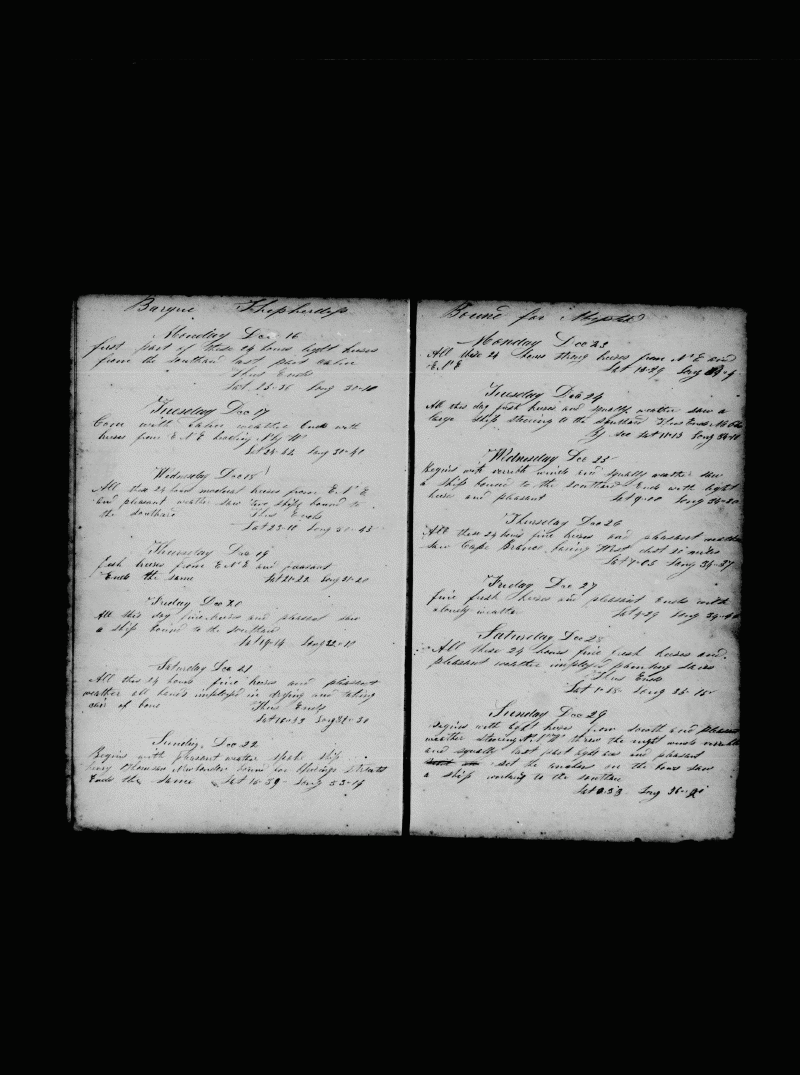 Barque Shepherdess
Monday Dec 16
first part of these 24 hours light breses
from the southard last part calm
Thus Ends
Lat 25-35 Long 30-10
Tuesday Dec 17
Com with calm weather Ends with
breses from E N E heading N by W
Lat 24-34 Long 30-40
Wednesday Dec 18
All this 24 hours moderat breses from E N E
and pleasant weather saw two ships bound to
the southard Thus Ends
Lat 23-18 Long 30-45
Thursday Dec 19
fresh breses from E N E and pleasant
Ends the same Lat 21-22 Long 31-20
Friday Dec 20
All this day fine breses and pleasant saw
a ship bound to the southard
Lat 19-14 Long 32-10
Saturday Dec 21
All this 24 hours fine breses and pleasant
weather all hands imployed in drying and taking
care of bone
Thus Ends
Lat 16-43 Long 32-30
Sunday Dec 22
Begins with pleasant weather spoke ship
bound for
Ends the same Lat 15-39 Long 33-14
Bound for
Monday Dec 23
All these 24 hours strong breses from N E and
E N E Lat 14-29 Long
Tuesday Dec 24
All this day fresh breses and squally weather saw a
large ship stearing to the southard Thus Ends
Lat 11-13 Long 34-18
Wednesday Dec 25
Begins with verible winds and squally weather saw
a ship bound to the southard Ends with light
brese and pleasant Lat 9-00 Long 34-20
Thursday Dec 26
All these 24 hours fine breses and pleasant weather
saw Cape Branco bearing West dist 20 miles
Lat 7-05 Long 34-37
Friday Dec 27
fine fresh breses and pleasant Ends with
cloudy weather Lat 4-29 Long 34-40
Saturday Dec 28
All these 24 hours fine fresh breses and
pleasant weather imployed
Thus Ends
Lat 1-15 Long 35-15
Sunday Dec 29
Begins with light breses from South and pleasant
weather stearing N N W threw the night winds verible
and squally last part light airs and pleasant
set the on the bows saw
a ship working to the southard
Lat 0-53 Long